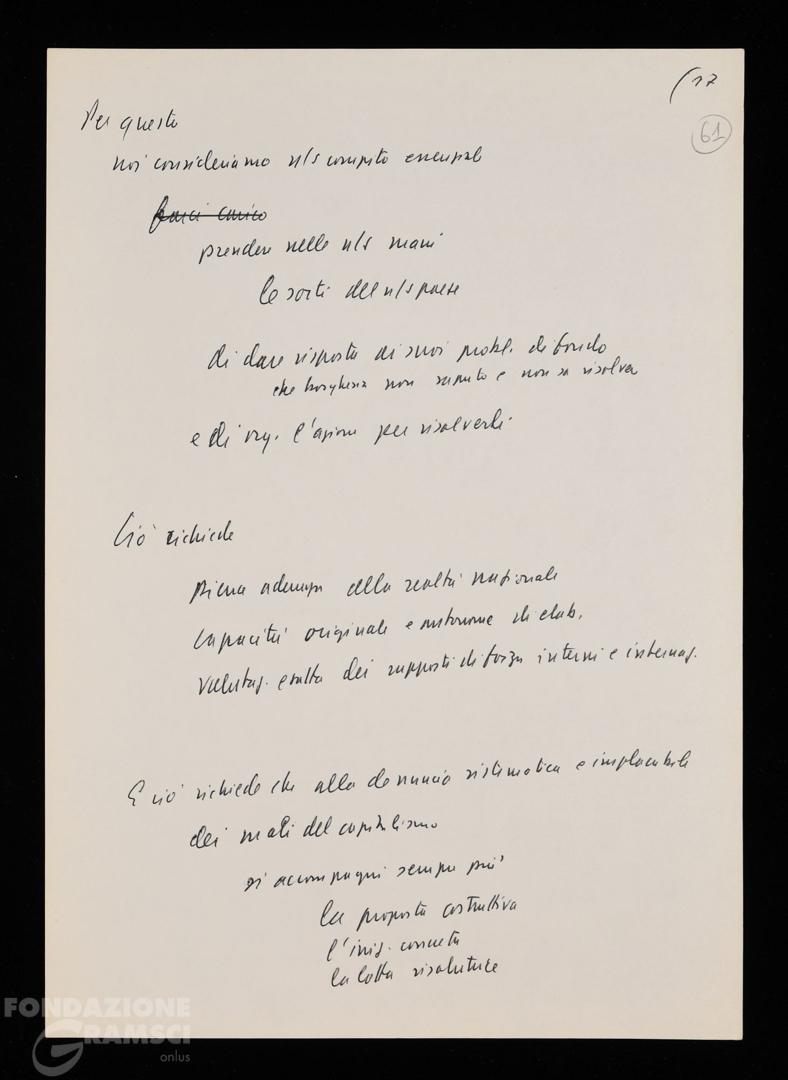 (17
61
Per questo
noi consideriamo n/s compito essenziale
farci carico
prendere nelle n/s mani
le sorti del n/s paese
di dare risposta ai suoi probl. di fondo
che borghesia non saputo e non sa risolvere
e di org. l'azione per risolverli
Ciò richiede
piena della realtà nazionale
capacità originale e autonoma di elab.
valutaz. esatta dei rapporti di forza interni e internaz.
E ciò richiede che alla denuncia sistematica e implacabile
dei mali del capitalismo
si accompagni sempre più
la proposta costruttiva
l'iniz. concreta
la lotta risolutrice
FONDAZIONE
GRAMSCI
onlus